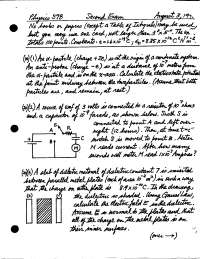 Physics 37B Second Exam August 2, 19
No books or papers (except a Table of Integrals) may be used,
but you may use one card, not larger than
totals 100 points. Constants: e = 1.6 x 10⁻¹⁹ C, ε₀ = 8.85 x 10⁻¹² C² N⁻¹ m⁻²
(1) An α-particle (charge +2e) is at the origin of a coordinate system.
An anti-proton (charge -e) is at a distance of 10⁻¹⁰ meters from
the α-particle and is on the x-axis. Calculate the electrostatic potential
at the point midway between the two particles. (Assume that both
particles are, and remain, at rest.)
(2) A source of emf of 5 volts is connected to a resistor of 10 ohms
and a capacitor of farads, as shown below. Switch S is
A B R
C
M
S
connected to point A and left over-
night (12 hours). Then, at time t=0
switch S is moved to point B. Meter
M reads current. After how many
seconds will meter M read Amperes?
(3) A slab of dielectric material of dielectric constant 7, is inserted
between parallel metal plates (each of area m²) in such a way
that the charge on either plate is C. In the drawing,
the dielectric is shaded. Using Gauss's law,
calculate the electric field E in the dielectric.
Assume E is normal to the plates and that
all of the charge on the metal plates is on
their inner surfaces.
(over →)